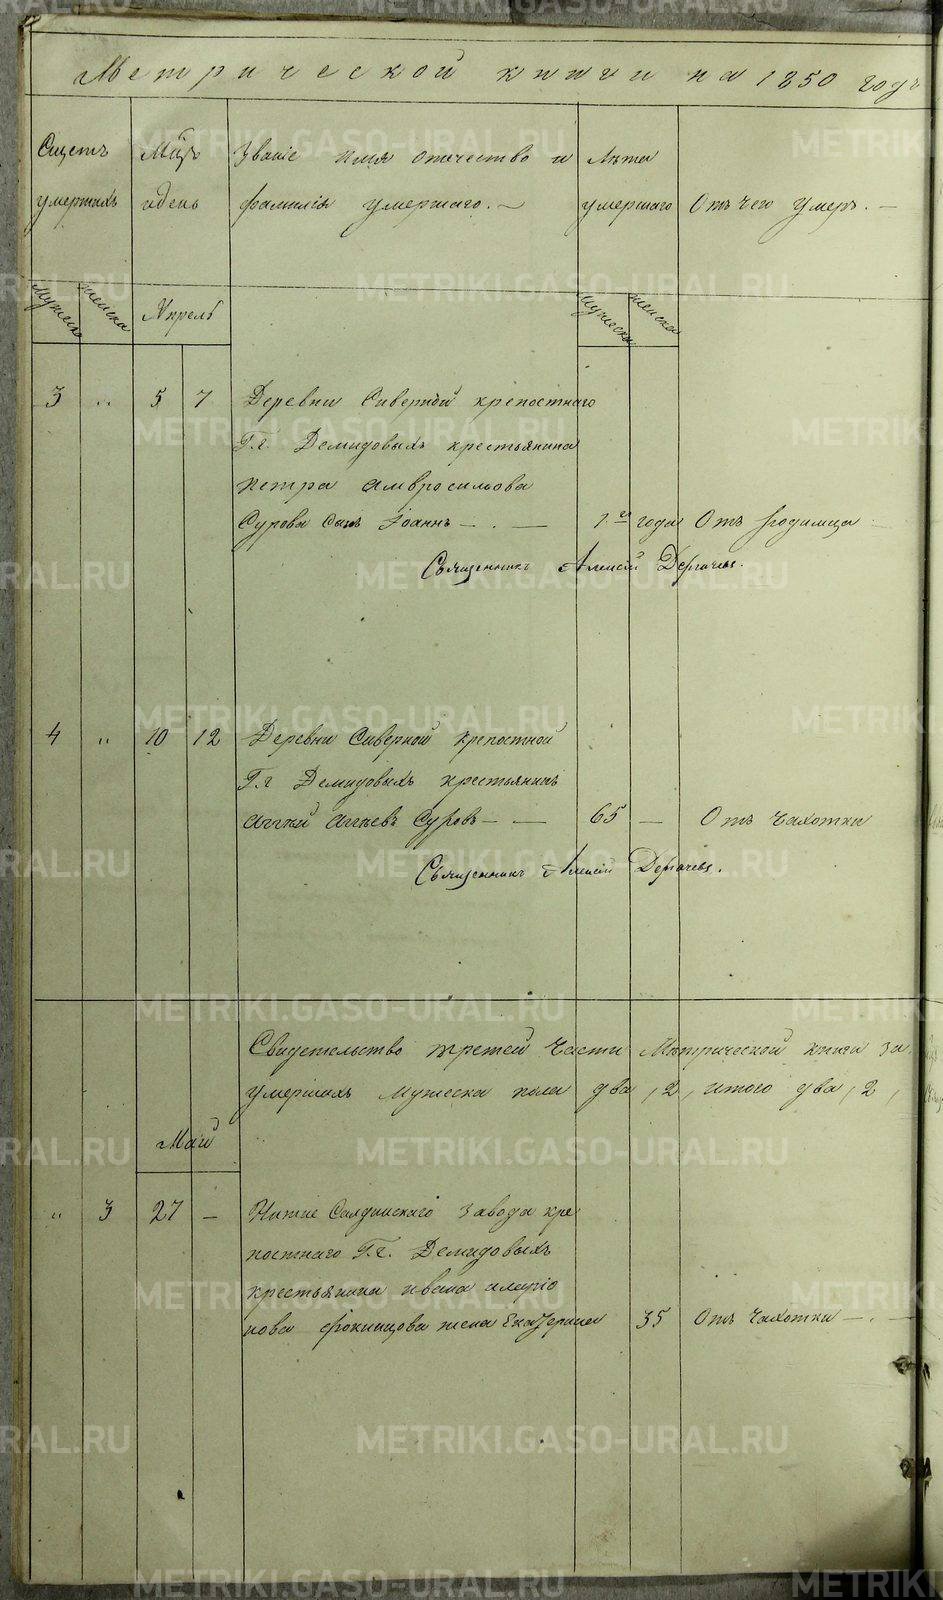 Метрической книги на 1850 годъ
Счетъ умершихъ
Мцъ и день
Званіе имя отчество и фамилія умершаго. —
Лѣта умершаго
Отъ чего умеръ. —
Мужеска
женска
Апрель
Мужеска
женска
3 " 5 7 Деревни Сиверной крепостнаго
Г.г. Демидовыхъ крестьянина
петра Амвросильова
Сурова Сынъ Іоаннъ — . — 1 го года Отъ Родимца
Священникъ Алексій Дерлачевъ.
4 " 10 12 Деревни Сиверной крепостной
Г.г Демидовыхъ крестьянинъ
Аггей Аггеевъ Суровъ — — 65 — Отъ Чахотки
Священникъ Алексій Дерлачевъ.
Свидетельство третей Части Метрической книги за
умершихъ Мужеска пола два, 2, итого два, 2,
Май
" 3 27 — Нижне Салдинскаго завода кре
постнаго Г.г. Демидовыхъ
крестьянина ивана иларіо
нова жена Екатерина 35 Отъ Чахотки — . —
METRIKI.GASO-URAL.RU